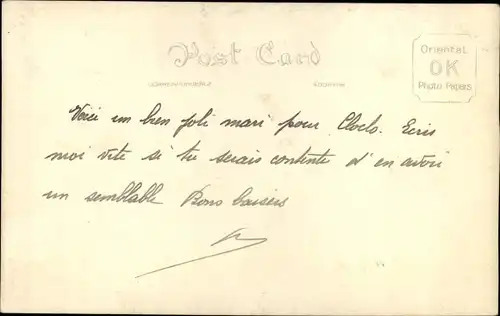 Post Card
Oriental
OK
Photo Papers
CORRESPONDENCE ADDRESS
Voici un bien joli mari pour Cloclo. Ecris
moi vite si tu serais contente d'en avoir
un semblable Bons baisers